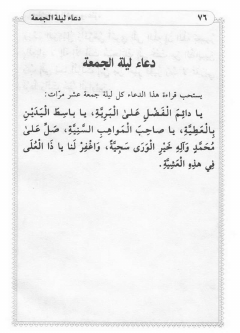 ٧٦
دعاء ليلة الجمعة
دعاء ليلة الجمعة
يستحب قراءة هذا الدعاء كل ليلة جمعة عشر مرّات:
يا دائِمَ الْفَضْلِ عَلىٰ الْبَرِيَّةِ، يا باسِطَ الْيَدَيْنِ
بِالْعَطِيَّةِ، يا صاحِبَ الْمَواهِبِ السَّنِيَّةِ، صَلِّ عَلىٰ
مُحَمَّدٍ وَآلِهِ خَيْرِ الْوَرىٰ سَجِيَّةً، وَاغْفِرْ لَنا يا ذَا الْعُلىٰ
في هذِهِ الْعَشِيَّةِ.